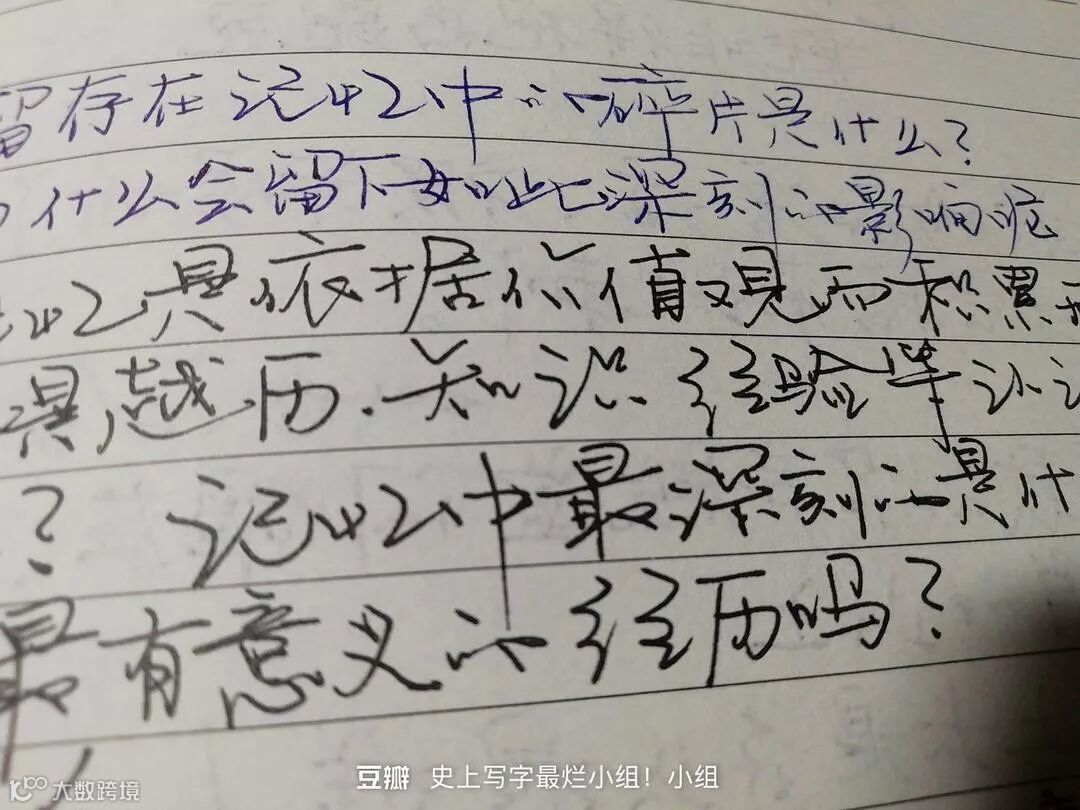 留存在记忆中的碎片是什么？
什么会留下如此深刻的影响呢
忆是依据价值观而积累
是越历.知识 经验等 认
？ 记忆中最深刻的是什
最有意义的经历吗？
豆瓣 史上写字最烂小组！小组
大数跨境